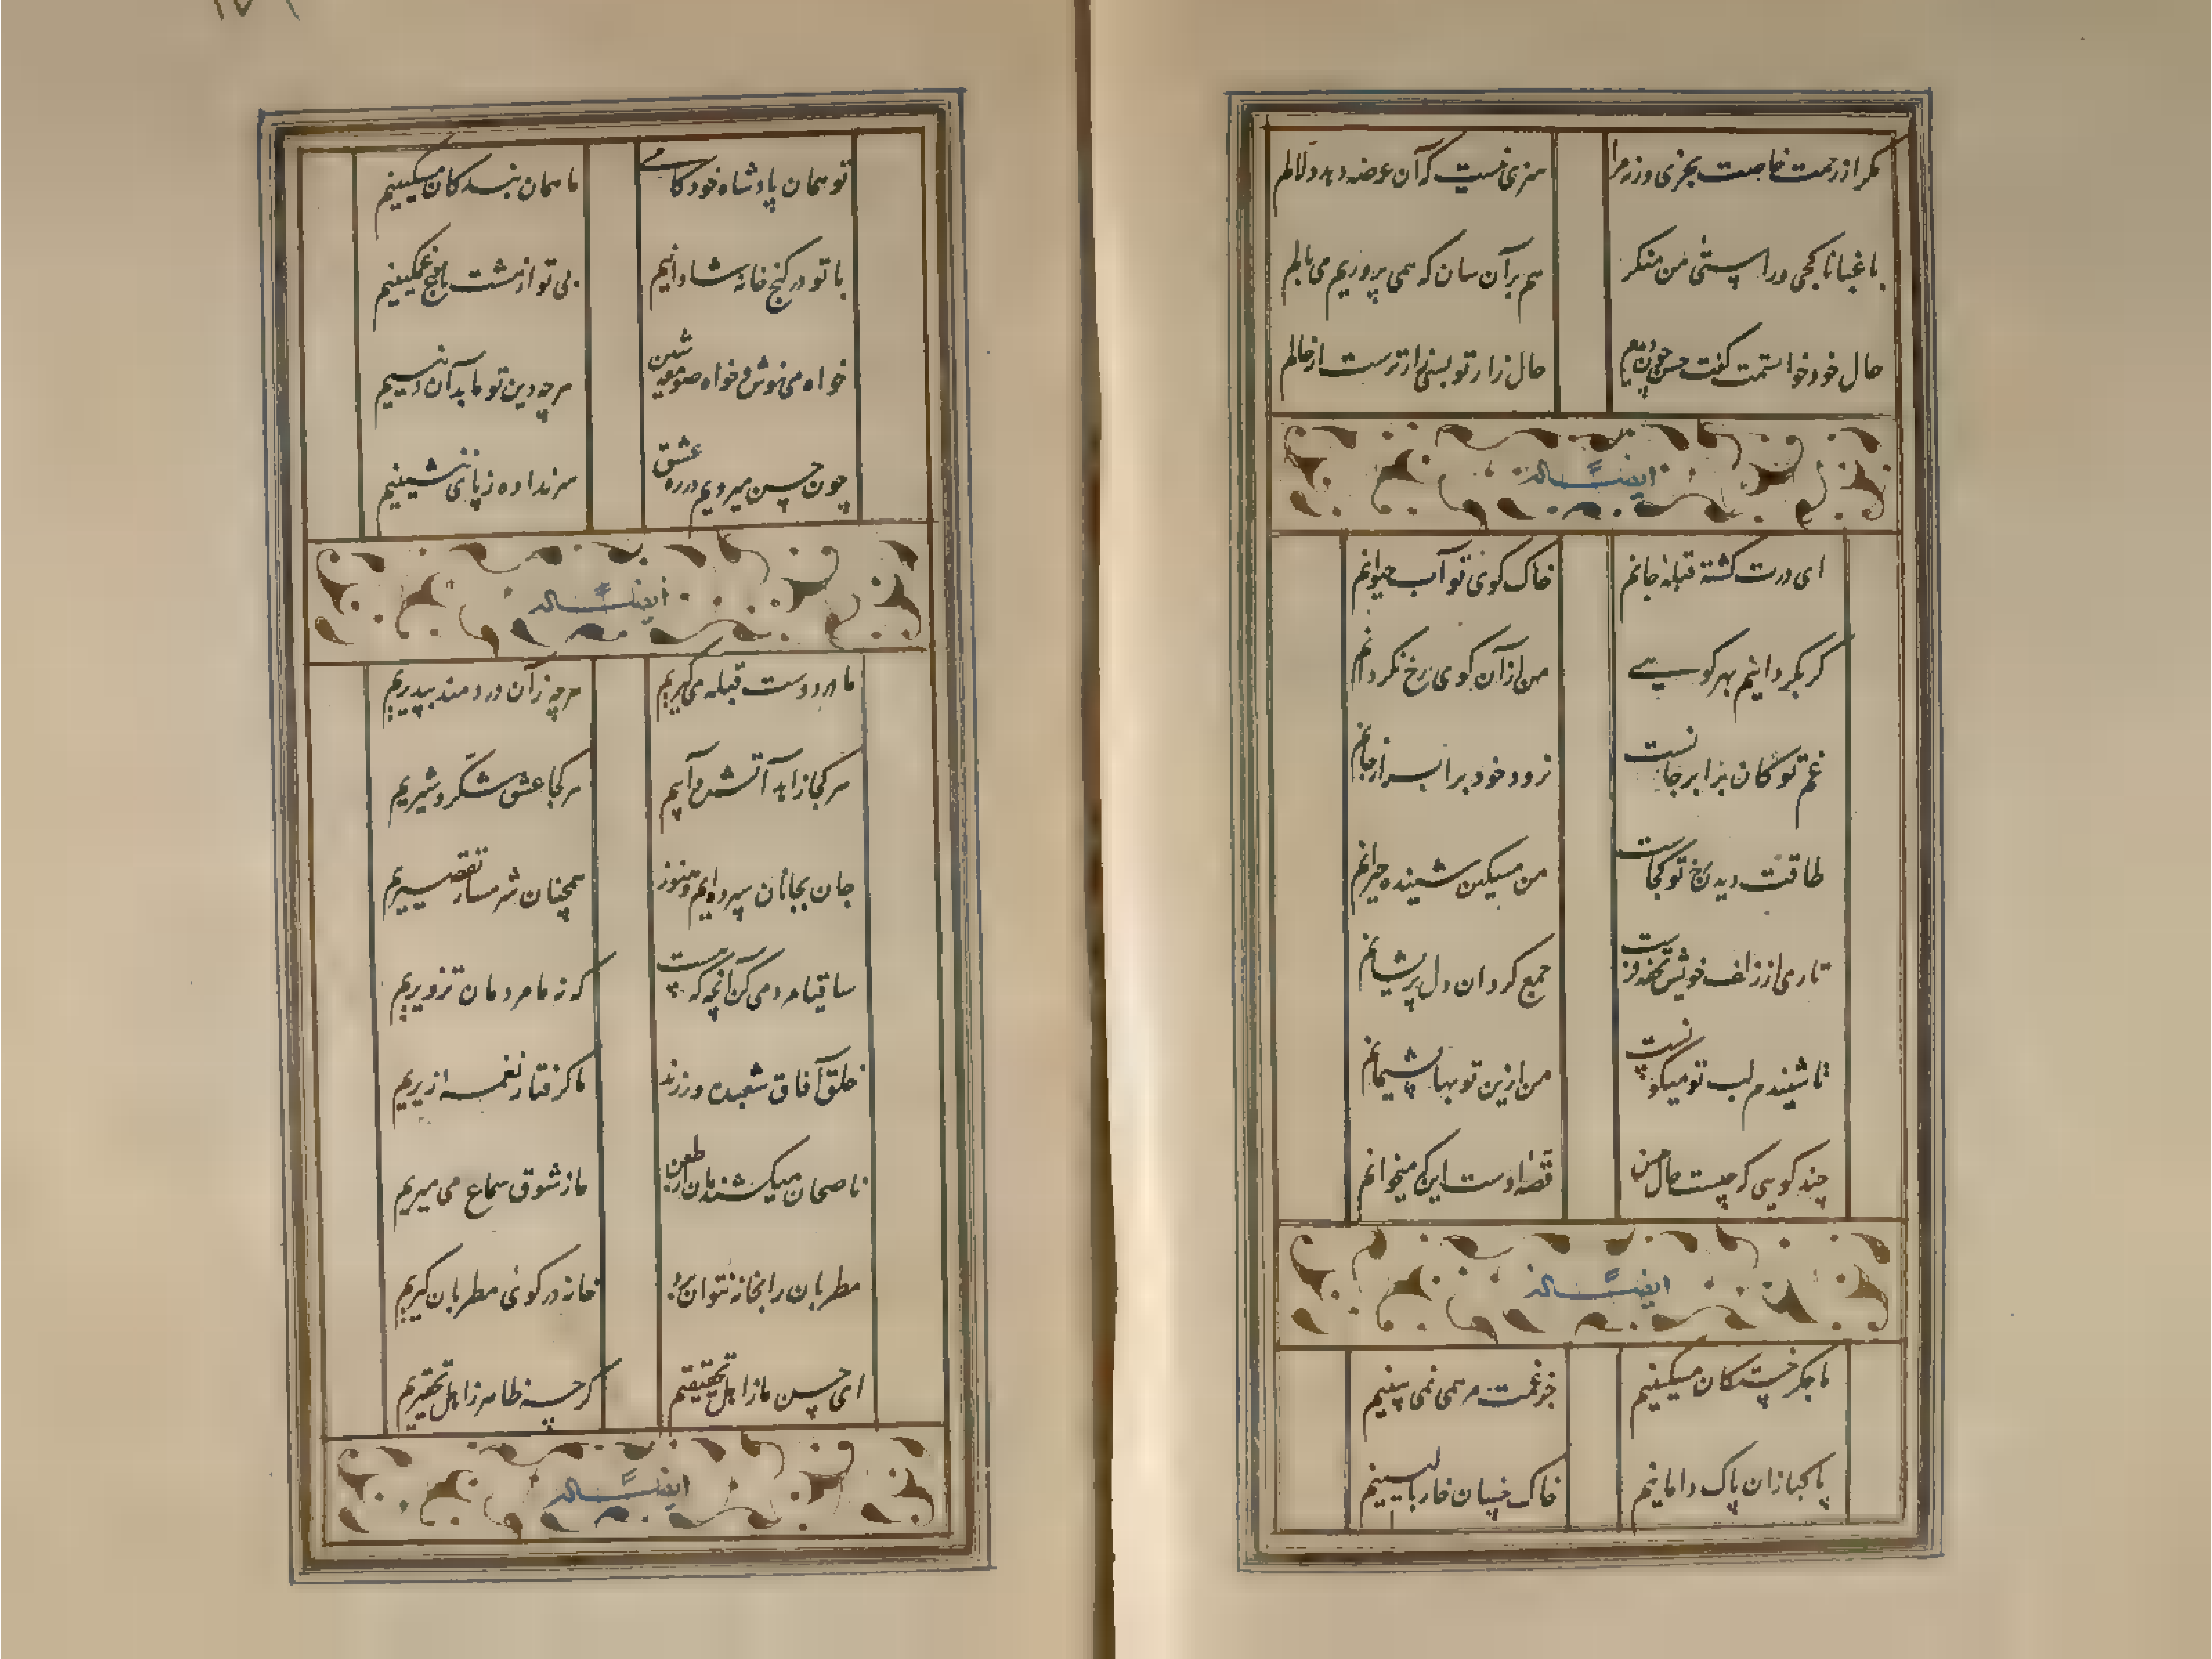 مگر از رحمت خاصت بخری ورزمرا
هنری نیست که آن عرضه دهد دلالم
باغبانا کجی و راستی من منگر
هم بر آن سان که همی پروریم می بالم
حال خود خواستمت گفت حسن چون
حال زار تو بسی زارترست از حالم
ایضا له
ای درت گشته قبله جانم
خاک کوی تو آب حیوانم
گر بگردانیم بهر کویی
من از آن کوی رخ نگردانم
غم تو کان بزا برجانست
زود خود برابر از جانم
طاقت دیدن رخ تو کجاست
من مسکین شنیده حیرانم
تاری از زلف خویش
جمع گردان دل پریشانم
تا شنیدم لب تو میگونست
من ازین توبها پشیمانم
چند گویی که چیست حال حسن
قصه اوست این که میخوانم
ایضا له
ما جگر خستگان مسکینیم
جز غمت مرهمی نمی بینیم
پاکبازان پاک دامانیم
خاک خسپان خار بالینیم
تو همان پادشاه خودکامی
ما همان بندگان مسکینیم
با تو در کنج خانه شادانیم
بی تو از هشت باغ غمگینیم
خواه می نوش و خواه صومعه شین
هرچه دین تو ما بدان دینیم
چون حسن میرویم در ره عشق
سر نداده ز پا ننشینیم
ایضا له
ما در دوست قبله می گیریم
هرچه زان در دهند بپذیریم
هر کجا زاهد آتش و آبیم
هر کجا عشق شکر و شیریم
جان بجانان سپرده ایم و هنوز
همچنان شرمسار تقصیریم
ساقیا مردمی کن آنچه که هست
که نه ما مردمان تزویریم
خلق آفاق شعبده ورزند
ما گرفتار نغمه از یریم
ناصحان میکشندمان از طعن
ما ز شوق سماع می میریم
مطربان را بخانه نتوان برد
خانه در کوی مطربان گیریم
ای حسن ما ز اهل تحقیقیم
گرچه ظاهر ز اهل تحقیریم
ایضا له